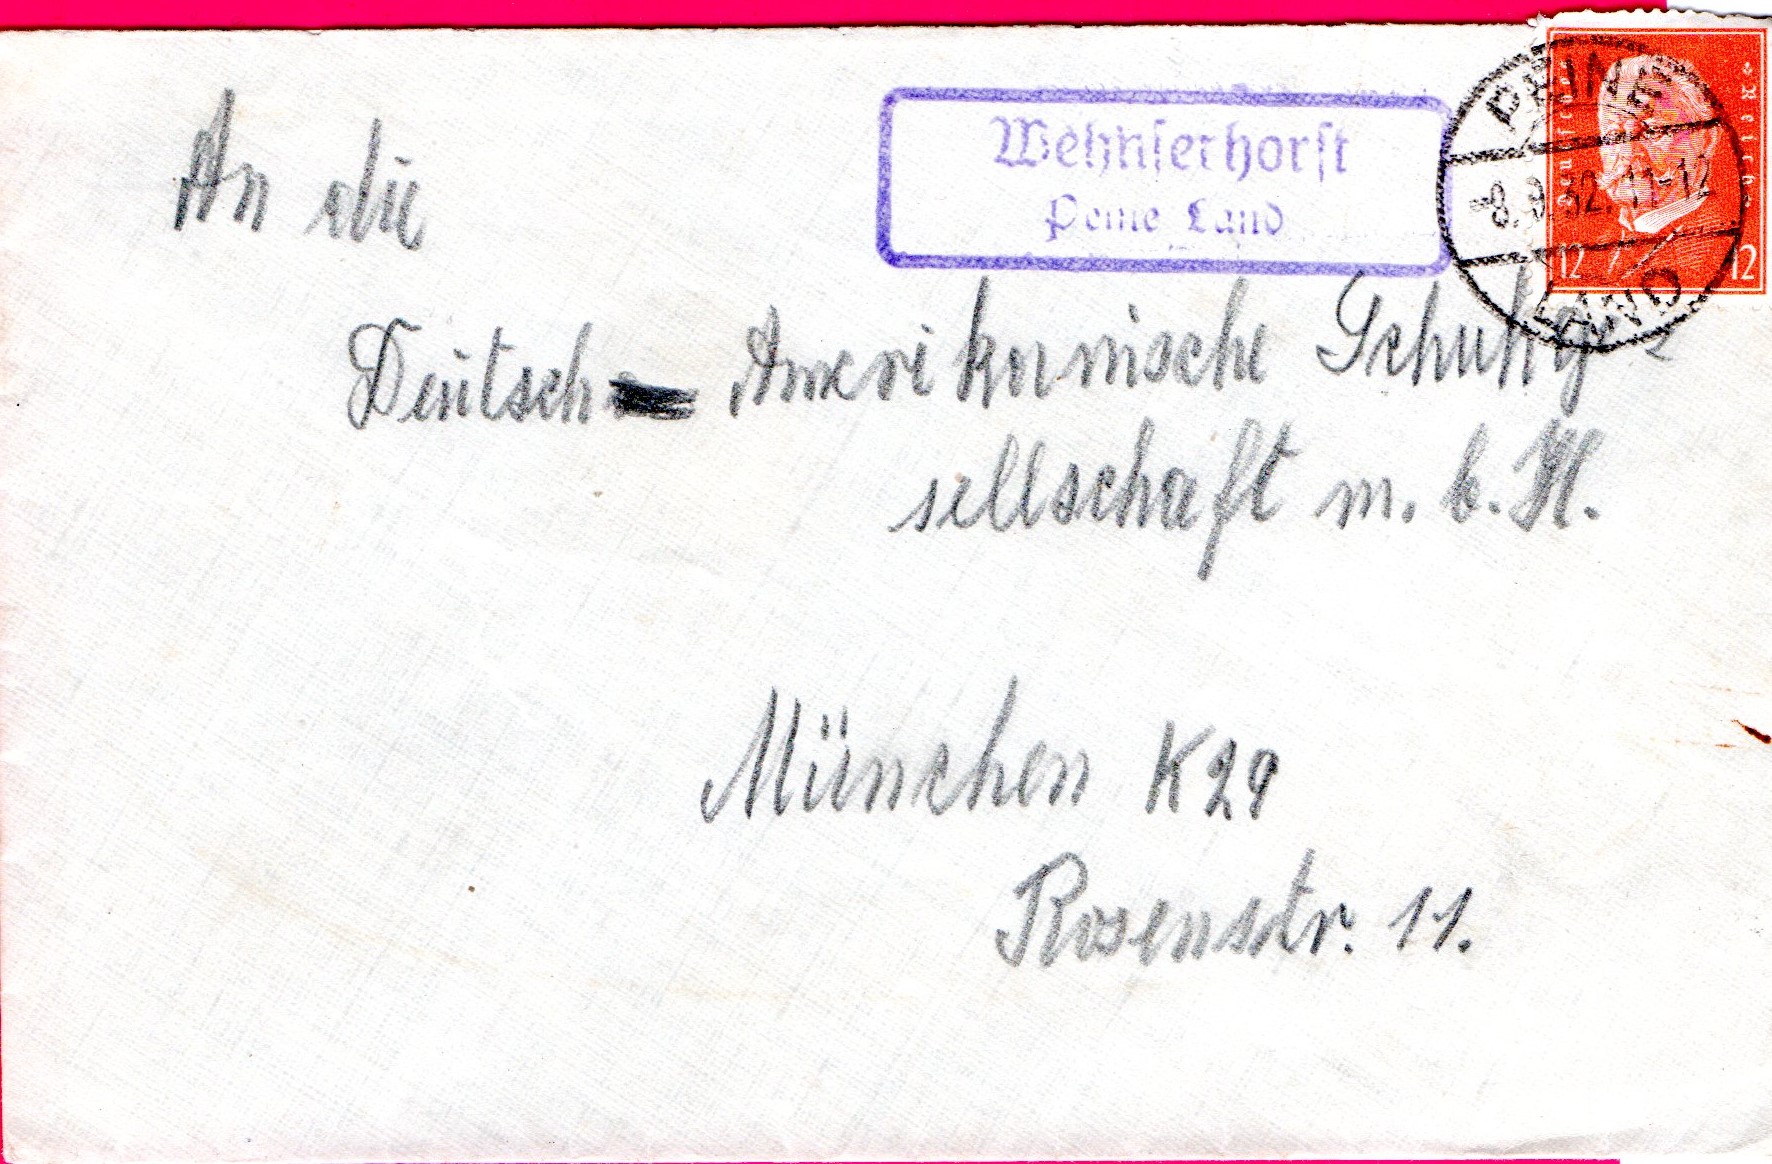 Wehnserhorst
Peine Land
PEINE
-8.9.32.11-12
LAND
Deutsches Reich
12 12
An die
Deutsch- Amerikanische Schuhge-
sellschaft m. b. H.
München K29
Rosenstr. 11.